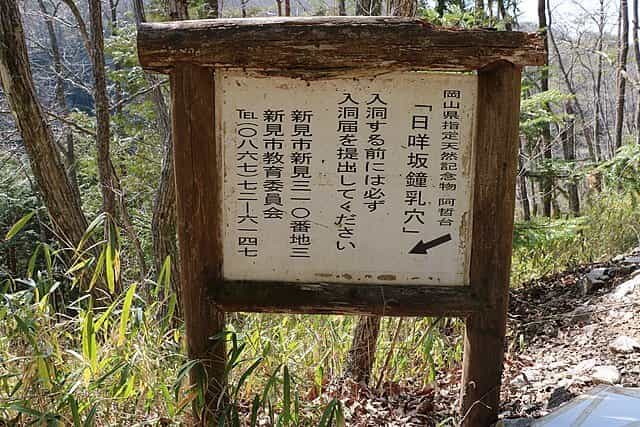 岡山県指定天然記念物 阿哲台
「日咩坂鐘乳穴」
入洞する前には必ず
入洞届を提出してください
新見市新見三一〇番地三
新見市教育委員会
TEL〇八六七-七二-六一四七